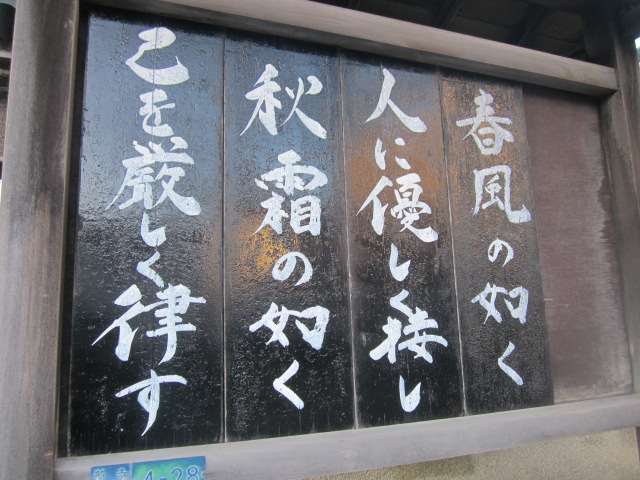 春風の如く
人に優しく接し
秋霜の如く
己を厳しく律す
新寺
4-28